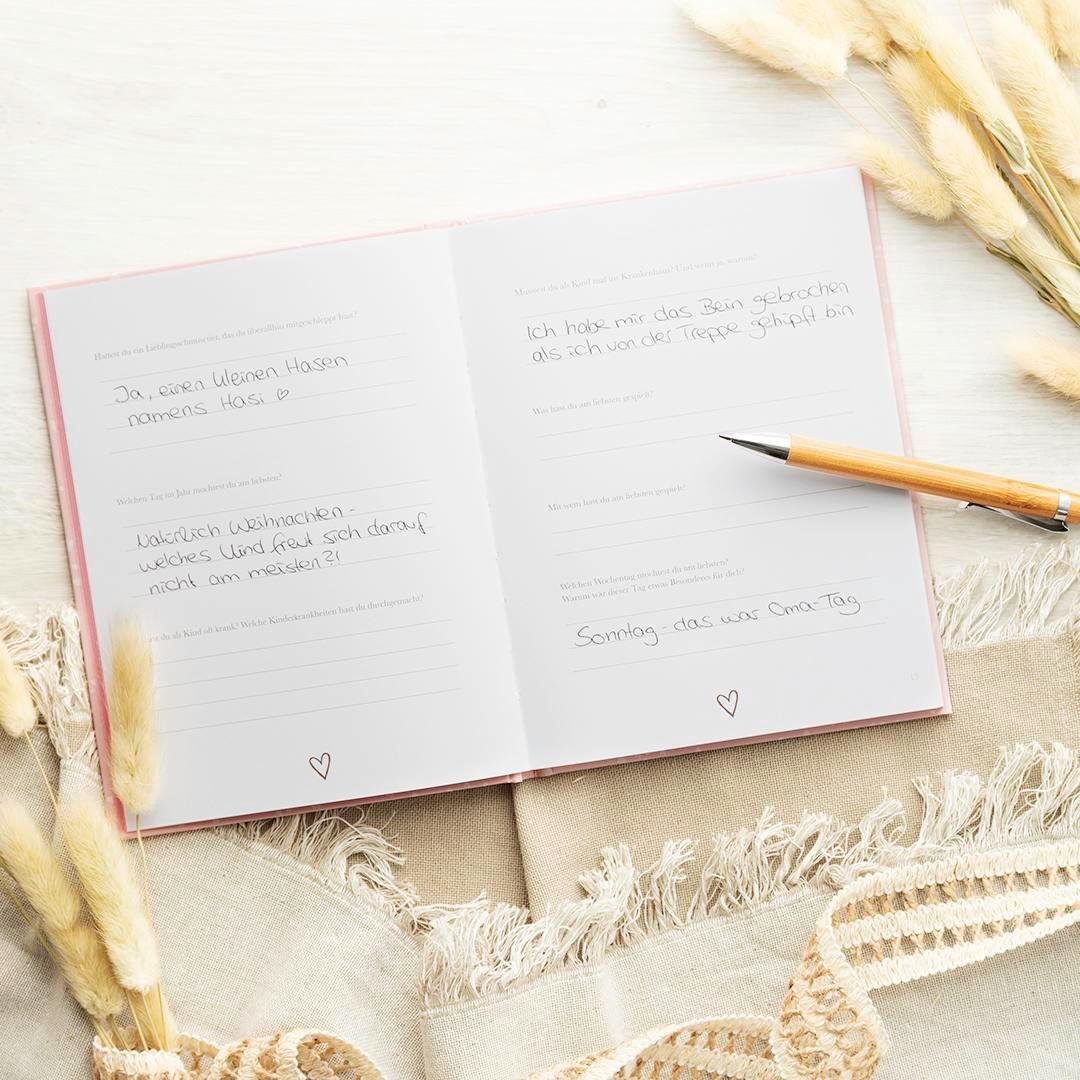 Hattest du ein Lieblingsschmusetier, das du überallhin mitgeschleppt hast?
Ja, einen kleinen Hasen
namens Hasi ♡
Welchen Tag im Jahr mochtest du am liebsten?
Natürlich Weihnachten -
welches Kind freut sich darauf
nicht am meisten?!
du als Kind oft krank? Welche Kinderkrankheiten hast du durchgemacht?
Musstest du als Kind mal ins Krankenhaus? Und wenn ja, warum?
Ich habe mir das Bein gebrochen
als ich von der Treppe gehüpft bin
Was hast du am liebsten gespielt?
Mit wem hast du am liebsten gespielt?
Welchen Wochentag mochtest du am liebsten?
Warum war dieser Tag etwas Besonderes für dich?
Sonntag - das war Oma-Tag
13